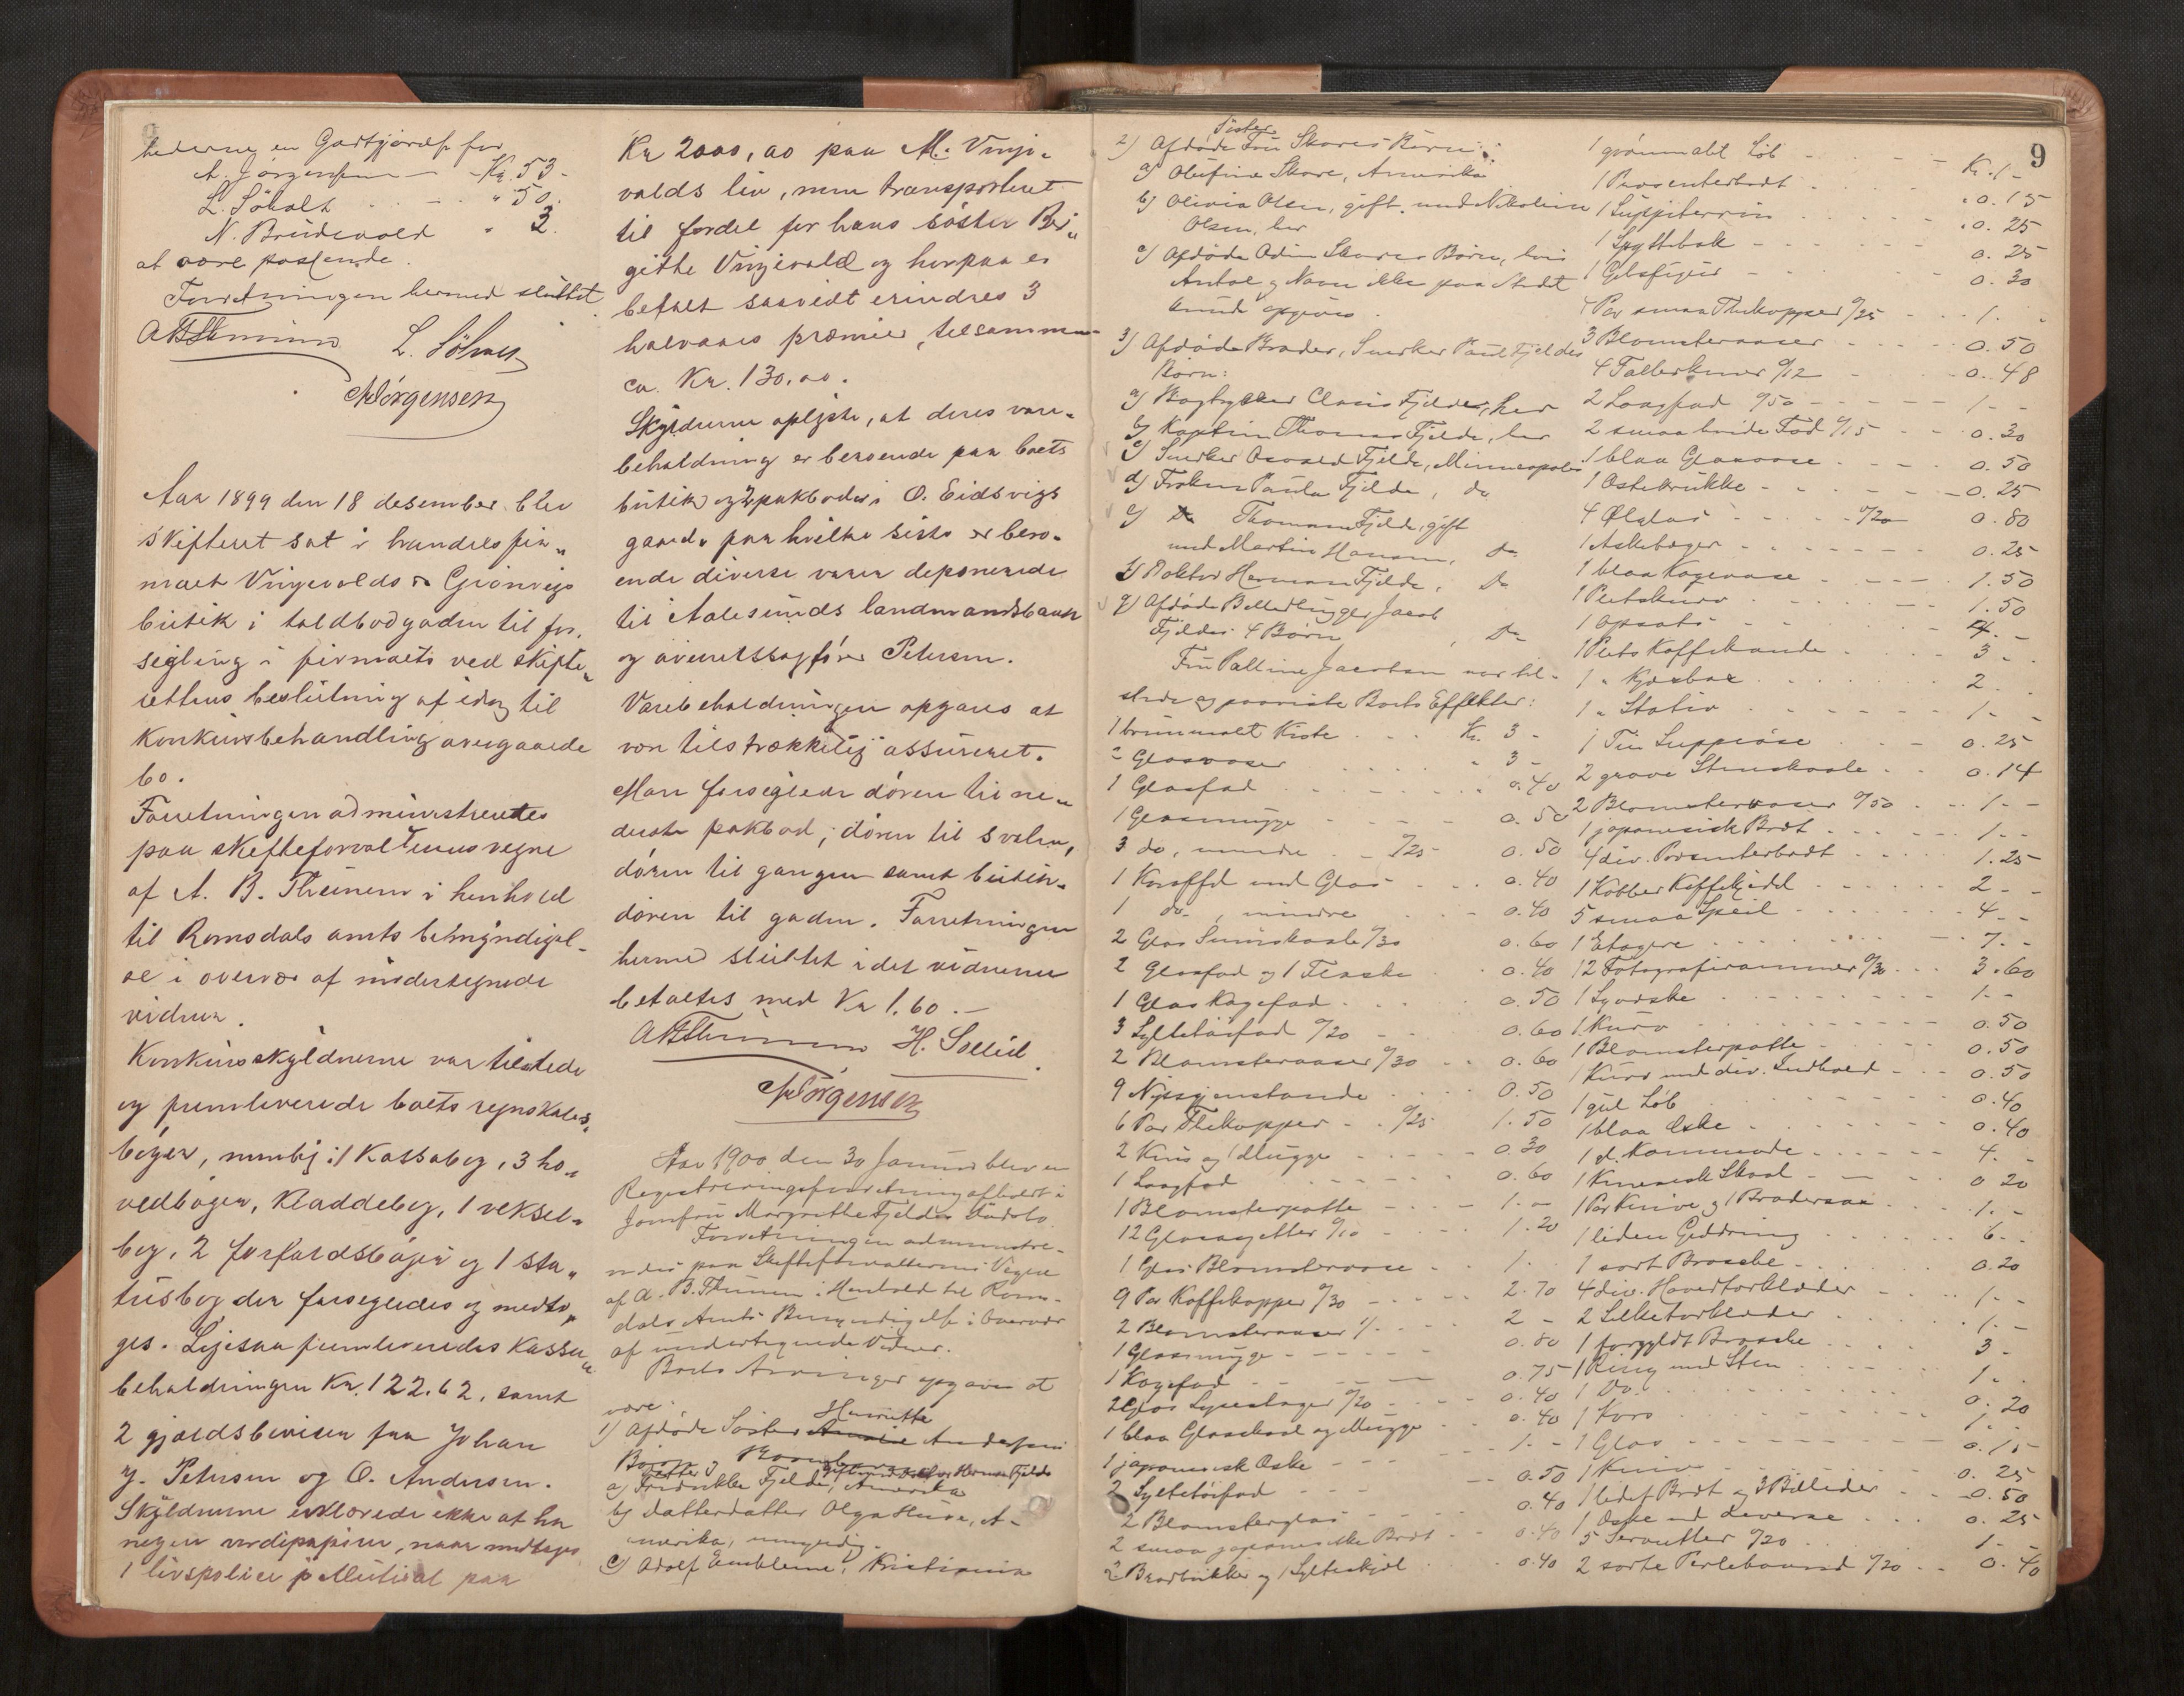 hederne en Godtgjørelse for
A. Jørgensen — Kr. 53 -
L. Søholt - - - " 50.
N. Brudevold " 3.
at være passende.
Forretningen hermed sluttet.
ABTheinem L. Søholt
AJørgensen
Aar 1899 den 18 desember blev
skifteret sat i handelsfir„
maet Vingevolds & Grönvigs
butik i toldbodgaden til for„
segling i firmaets ved skifte„
rettens beslutning af idag til
konkursbehandling overgaaede
bo.
Forretningen administreredes
paa skifteforvalterens vegne
af A. B. Theinem i henhold
til Romsdals amts bemyndigel„
se i overvær af undertegnede
vidner.
Konkursskyldnerne var tilstede
og fremleverede boets regnskabs„
bøger, nemlig: 1 Kassabog, 3 ho„
vedbøger, Kladdebog, 1 veksel„
bog, 2 forfaldsbøger og 1 sta„
tusbog der forsegledes og medto„
ges. Ligesaa fremleveredes Kassa„
beholdningen Kr. 122.62, samt
2 gjældsbeviser fra Johan
J. Petersen og O. Andersen.
Skyldnerne erklærede ikke at ha
nogen værdipapirer, naar undtages
1 livspolice i Mutual paa
Kr 2000,00 paa M. Vinje„
volds liv, men transporteret
til fordel for hans søster Ber„
githe Vingevold og herpaa er
betalt saavidt erindres 3
halvaars præmier, tilsammen
ca. Kr. 130,00.
Skyldnerne oplyste, at deres vare„
beholdning er beroende paa boets
butik og 2 pakboder i O. Eidsvigs
gaard, paa hvilke sidste er bero„
ende diverse varer deponerede
til Aalesunds landmandsbank
og overretssagfører Petersen.
Varebeholdningen opgaves at
være tilstrækkelig assureret.
Man forseglede døren til ne„
derste pakbod, døren til svalen,
døren til gangen samt butik„
døren til gaden. Forretningen
hermed sluttet idet vidnerne
betaltes med Kr 1.60.—
ABTheinem H. Solleid.
AJørgensen
Aar 1900 den 30 Januar blev en
Registreringsforretning afholdt i
Jomfru Margrethe Fjeldes Dødsbo.
Forretningen administre-
redes paa Skifteforvalterens Vegne
af A. B. Theinem i Henhold til Roms-
dals Amts Bemyndigelse i Overvær
af undertegnede Vidner.
Boets Arvinger opgaves at
være:
1) Afdøde Søster Henriette Andersens
Børn og
a) Fredrikke Fjelde, gift med Doktor Herman Fjelde, Amerika
b) Datterdatter Olga Huse, A-
merika, umyndig.
c) Adolf Emblem, Kristiania
9
2) Afdøde Søster Fru Skares Børn:
a) Olufine Skare, Amerika
b) Olivia Olsen, gift med Nikolai
Olsen, her
c) Afdøde Odin Skares Børn, hvis
Antal og Navn ikke paa Stedet
kunde opgives.
3) Afdøde Broder, Snedker Paul Fjeldes
Børn:
a) Bogtrykker Claus Fjelde, her
b) Kaptein Thomas Fjelde, her
c) Snedker Oswald Fjelde, Minneapolis
d) Frøken Paula Fjelde, do
e) Thomane Fjelde, gift
med Martin Hansen, do
f) Doktor Herman Fjelde, do
g) Afdøde Billedhugger Jacob
Fjeldes 4 Børn, do
Fru Palline Jacobsen var til-
stede og paaviste Boets Effekter:
1 brunmalt Kiste . . . Kr. 3 -
2 Glasvaser . . . " 3 -
1 Glasfad . . . " 0.40
1 Glasmugge - - - 0.50
3 do, mindre . - %25 0.50
1 Karaffel med Glas . . . 0.40
1 do, mindre - 0.40
2 Glas Smørskaale %30 0.60
2 Glasfad og 1 Flaske . 0.40
1 Glas Kagefad . . . 0.50
3 Syltetøifad %20 - . 0.60
2 Blomstervaser %30 . . 0.60
9 Nipsgjenstande . . . 0.50
6 Par Thekopper - . %25 1.50
2 Krus og 1 Mugge - - - 0.30
1 Langfad . . . 0.60
1 Blomsterpotte - - - 1. -
12 Glasasjetter %10 - . 1.20
1 Glas Blomstervase - - 1 .
9 Par Kaffekopper %30 - - - 2.70
2 Blomstervaser 1/ - - - 2 -
1 Glasmugge - - - - 0.80
1 Kagefad - - - 0.75
2 Glas Lysestager %20 - - 0.40
1 blaa Glasskaal og Mugge - - 0.40
1 japanesisk Æske - - - 1. -
2 Syltetøifad - - - 0.50
2 Blomsterglas - - - 0.40
2 smaa japanesiske Bræt - - 0.40
2 Brødbrikker og 1 Syltetskjel . 0.40
1 grønmalt Løb . - - - Kr. 1 -
1 Presenterbræt . . . " 0.15
1 Suppeterrin . . . " 0.25
1 Spyttebak - - - 0.25
1 Gibsfigur - - - 0.30
4 Par smaa Thekopper %25 - - 1. -
3 Blomstervaser - - - 0.50
4 Tallerkener %12 - 0.48
2 Langfad %50 - - - 1 - -
2 smaa hvide Fad %15 - - 0.30
1 blaa Glasvase . - - - 0.50
1 Ostekrukke - - - 0.25
4 Ølglas - - - %20 0.80
1 Askebæger - - - 0.25
1 blaa Kagevase . - - - 1.50
1 Pletskurv . - - - 1.50
1 Opsats - - - 4. -
1 Plets Kaffekande . - - 3 - .
1 " Kjæxbox . . . 2 .
1 " Stativ . . . 1 - -
1 Tin Suppeøse . . - 0.25
2 grove Stenskaale . . 0.14
2 Blomstervaser %50 . - - 1 - -
1 japanesisk Bræt . - - - 1 - -
4 div. Presenterbræt . . . 1.25
1 Kobber Kaffekjedel . . . 2 - -
5 smaa Speil . . . 4 - -
1 Etagere . . . 7 - -
12 Fotografirammer %30 . . . 3.60
1 Syæske . . . 1 - -
1 Kurv . . . 0.50
1 Blomsterpotte . . . 0.50
1 Kurv med div. Indhold - - - 0.50
1 gul Løb . . . 0.40
1 blaa Æske . . . 0.40
1 gl. Kommode . . . 4. -
1 Kinesisk Skaal - - - 0.20
1 Par Knive og 1 Brødersax . . . 1. -
1 liden Guldring . . . 6 - -
1 sort Broche - . . . 0.20
4 div. Hovedtørklæder - - - 1 - -
2 Silketørklæder . . . 1. -
1 forgyldt Broche . . . 3 -
1 Ring med Sten . . . 1 .
1 Do. . . . 0.20
1 Kors . . . 1 -
1 Glas - - - 0.15
1 Kniv - - - 0.25
1 lidet Bræt og 3 Billeder - - 0.50
1 Æske med Diverse . . . 0.25
5 Servietter %20 . . 1 - -
2 sorte Perlebaand %20 . . 0.40